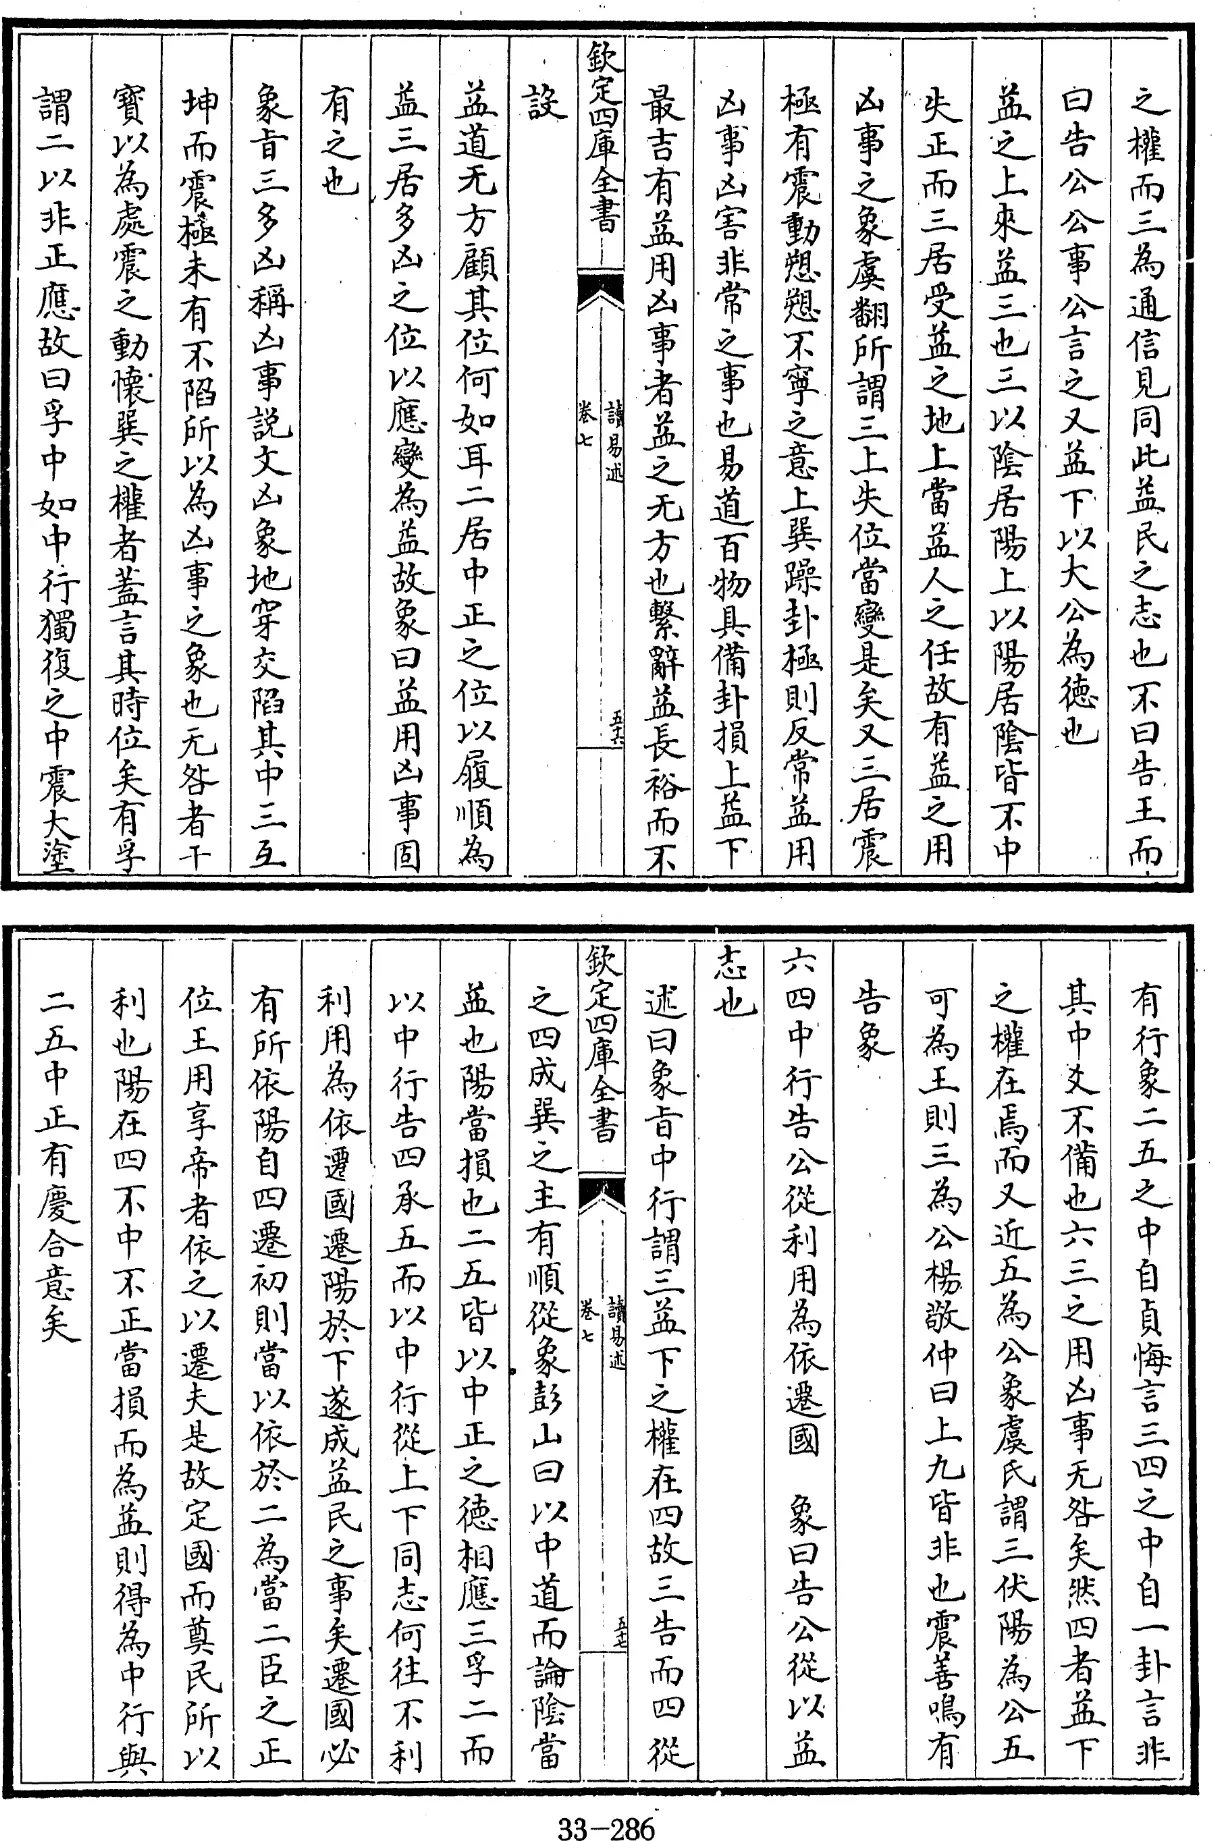 之權而三為通信見同此益民之志也不曰告王而
曰告公公事公言之又益下以大公為徳也
益之上來益三也三以陰居陽上以陽居陰皆不中
失正而三居受益之地上當益人之任故有益之用
凶事之象虞翻所謂三上失位當變是矣又三居震
極有震動愬愬不寧之意上巽躁卦極則反常益用
凶事凶害非常之事也易道百物具備卦損上益下
最吉有益用凶事者益之无方也繫辭益長裕而不
欽定四庫全書
讀易述
卷七
五十六
設
益道无方顧其位何如耳二居中正之位以履順為
益三居多凶之位以應變為益故象曰益用凶事固
有之也
象旨三多凶稱凶事説文凶象地穿交陷其中三互
坤而震極未有不陷所以為凶事之象也无咎者干
寳以為處震之動懷巽之權者葢言其時位矣有孚
謂二以非正應故曰孚中如中行獨復之中震大塗
有行象二五之中自貞悔言三四之中自一卦言非
其中爻不備也六三之用凶事无咎矣然四者益下
之權在焉而又近五為公象虞氏謂三伏陽為公五
可為王則三為公楊敬仲曰上九皆非也震善鳴有
告象
六四中行告公從利用為依遷國 象曰告公從以益
志也
述曰象旨中行謂三益下之權在四故三告而四從
欽定四庫全書
讀易述
卷七
五十七
之四成巽之主有順從象彭山曰以中道而論陰當
益也陽當損也二五皆以中正之徳相應三孚二而
以中行告四承五而以中行從上下同志何往不利
利用為依遷國遷陽於下遂成益民之事矣遷國必
有所依陽自四遷初則當以依於二為當二臣之正
位王用享帝者依之以遷夫是故定國而奠民所以
利也陽在四不中不正當損而為益則得為中行與
二五中正有慶合意矣
33-286